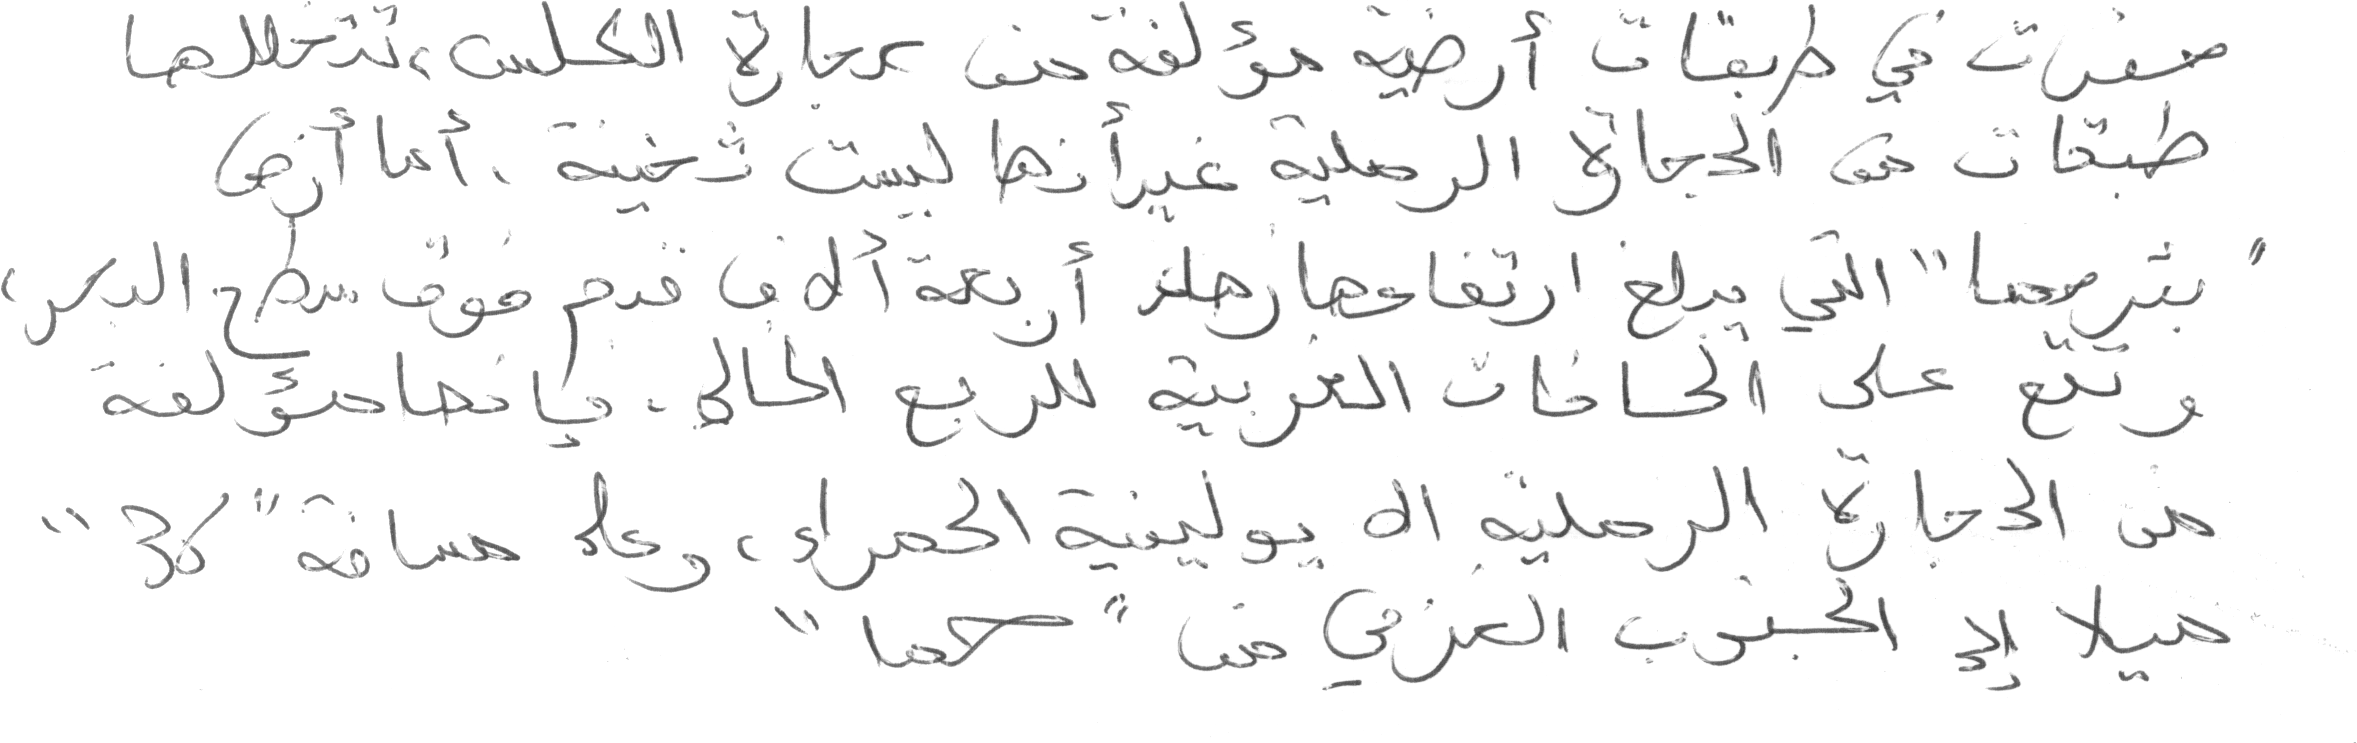 حفرت في طبقات أرضية مؤلفة من حجارة الكلس، تتخللها
طبقات من الحجارة الرملية غير أنها ليست ثخينة. أما أرض
"بئر حما" التي يبلغ ارتفاعها زهاء أربعة ألاف قدم فوق سطح البحر،
وتقع على الحافات الغربية للربع الخالي. فإنها مؤلفة
من الحجارة الرملية الايوليفية الحمراء، وعلى مسافة "36"
ميلا إلى الجنوب الغربي من "حما"